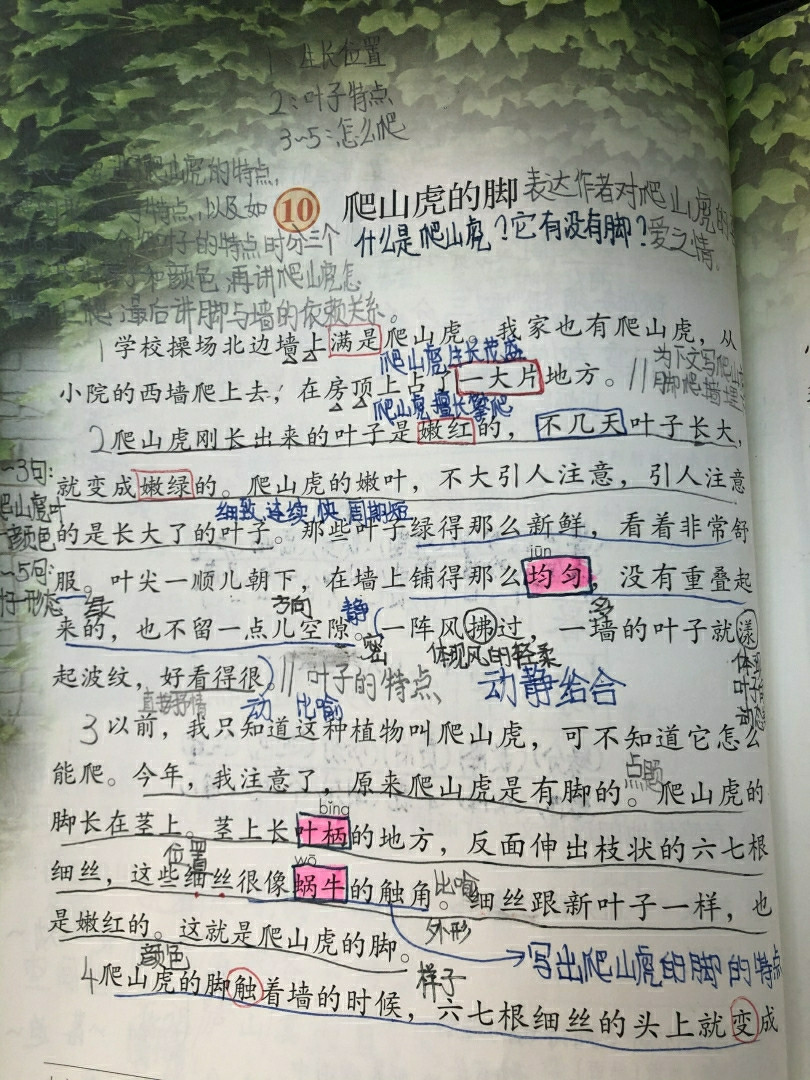 1 生长位置
2：叶子特点
3~5：怎么爬
爬山虎的特点，
特点，以及如
叶子的特点时分三个
和颜色，再讲爬山虎怎
爬，最后讲脚与墙的依赖关系。
10 爬山虎的脚
表达作者对爬山虎的
爱之情。
什么是爬山虎？它有没有脚？
1学校操场北边墙上满是爬山虎。我家也有爬山虎，从
爬山虎生长茂盛
为下文写爬山
脚爬墙
小院的西墙爬上去，在房顶上占了一大片地方。
爬山虎擅长攀爬
2爬山虎刚长出来的叶子是嫩红的，不几天叶子长大，
~3句：
爬山虎叶
颜色
~5句：
形态
就变成嫩绿的。爬山虎的嫩叶，不大引人注意，引人注意
细致 连续 快 周期短
的是长大了的叶子。那些叶子绿得那么新鲜，看着非常舒
jūn
服。叶尖一顺儿朝下，在墙上铺得那么均匀，没有重叠起
绿 方向 静 多
来的，也不留一点儿空隙。一阵风拂过，一墙的叶子就漾
密 体现风的轻柔
体现
叶子
动态
起波纹，好看得很。
叶子的特点 动静结合
直接抒情 动 比喻
3以前，我只知道这种植物叫爬山虎，可不知道它怎么
能爬。今年，我注意了，原来爬山虎是有脚的。爬山虎的
点题
bǐng
脚长在茎上。茎上长叶柄的地方，反面伸出枝状的六七根
位置 wō
细丝，这些细丝很像蜗牛的触角。细丝跟新叶子一样，也
比喻
外形
是嫩红的。这就是爬山虎的脚。
写出爬山虎的脚的特点
颜色 样子
4爬山虎的脚触着墙的时候，六七根细丝的头上就变成